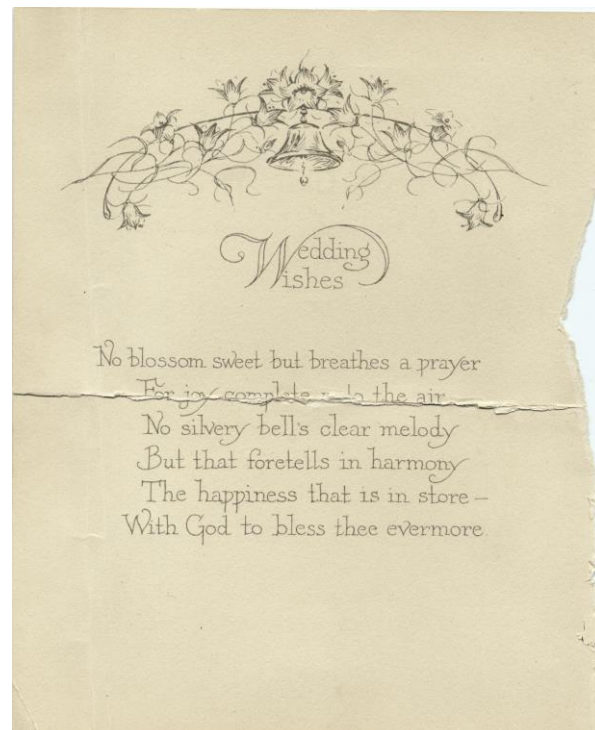 Wedding
Wishes
No blossom sweet but breathes a prayer
For joy complete unto the air
No silvery bell's clear melody
But that foretells in harmony
The happiness that is in store —
With God to bless thee evermore